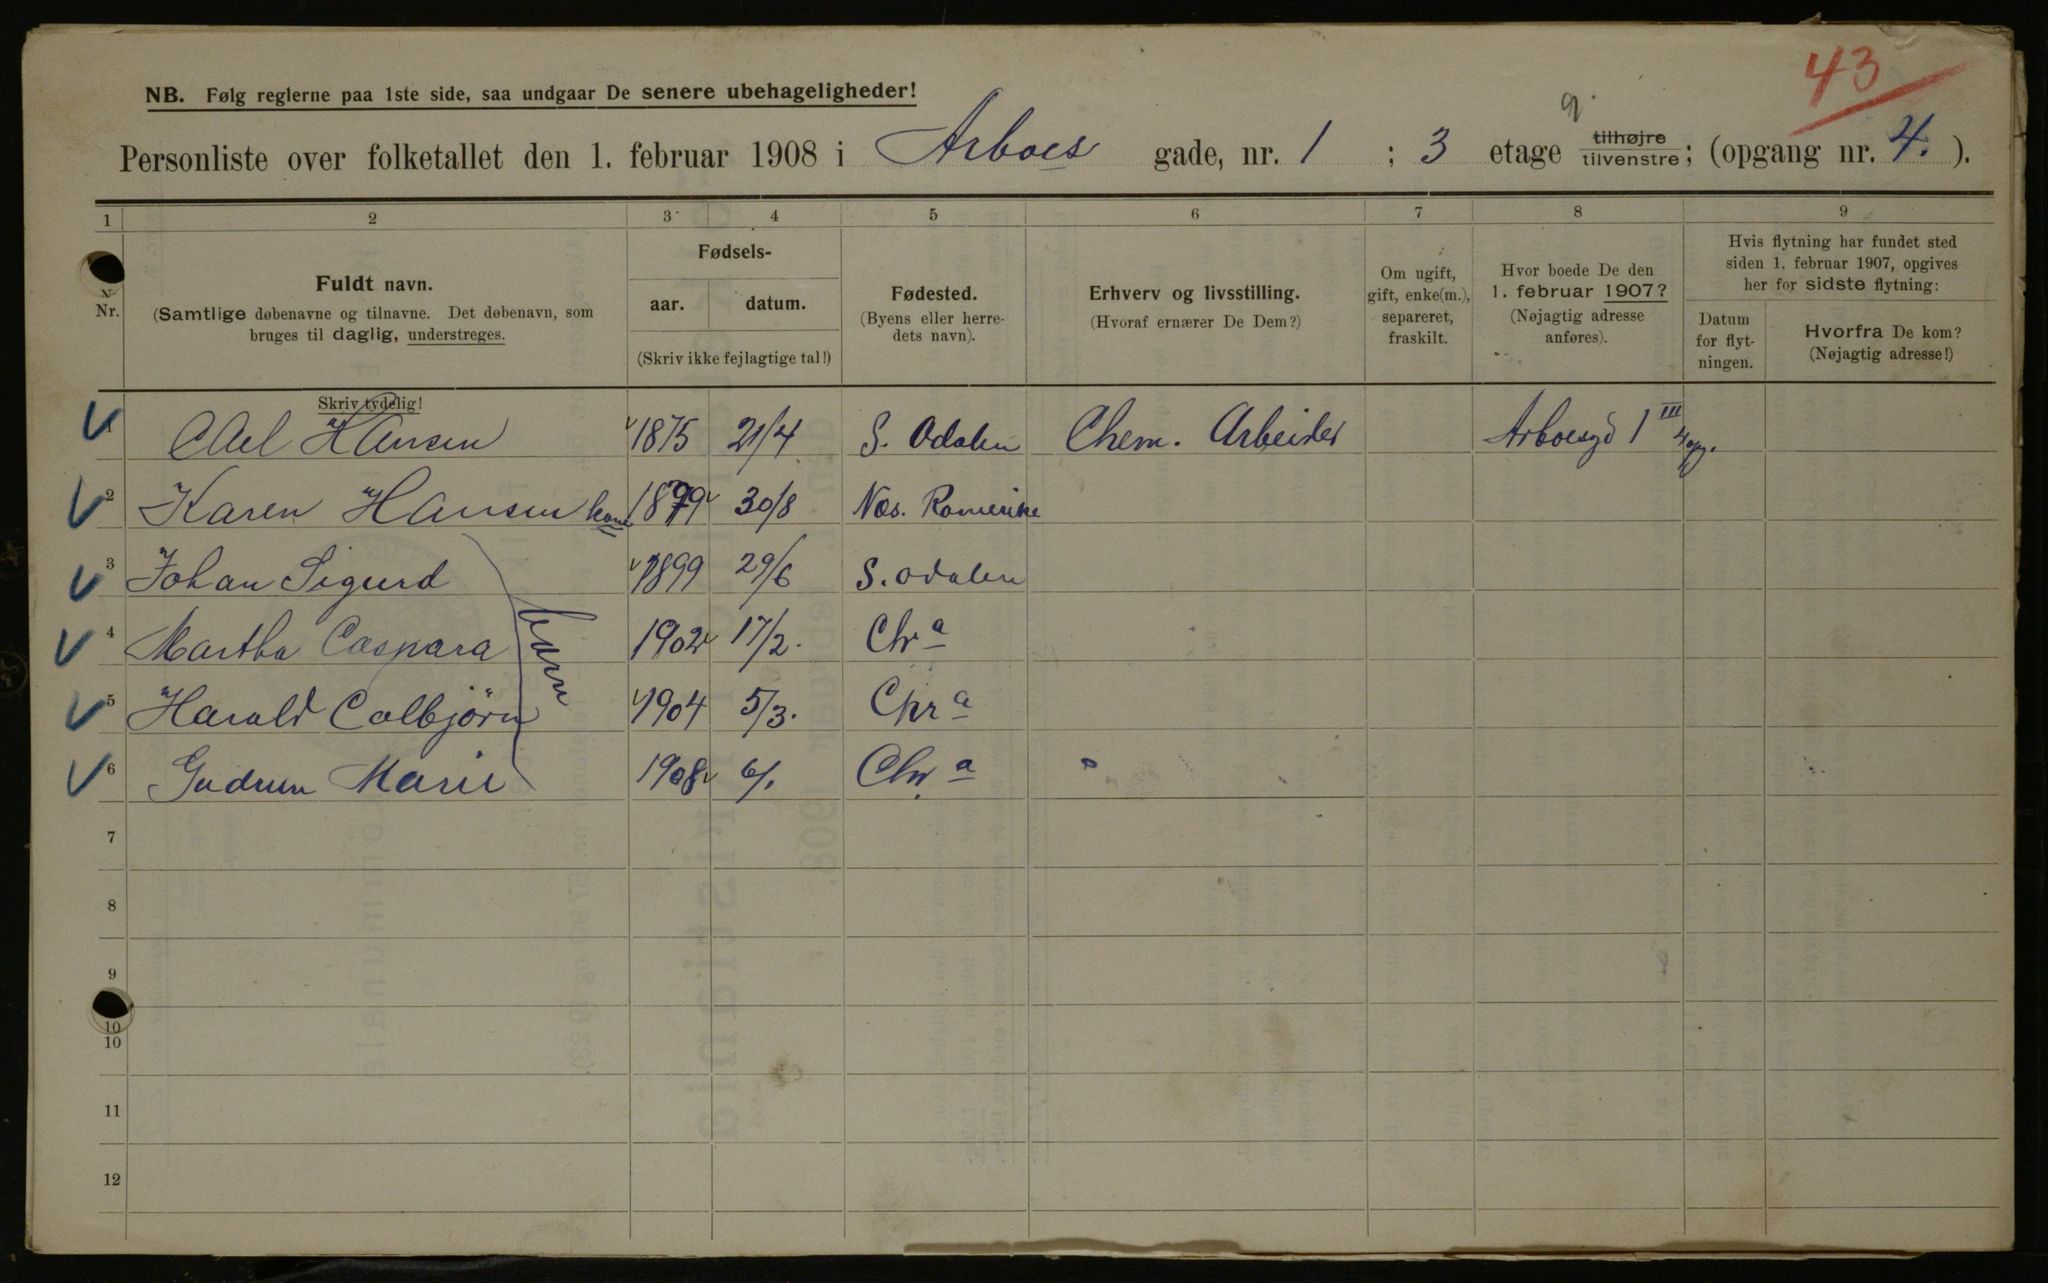 43
NB. Følg reglerne paa 1ste side, saa undgaar De senere ubehageligheder!
Personliste over folketallet den 1. februar 1908 i Arboes gade, nr. 1 ; 3 etage tilhøjre tilvenstre; (opgang nr. 4. ).
1 2 3 4 5 6 7 8 9
Nr.
Fuldt navn.
(Samtlige døbenavne og tilnavne. Det døbenavn, som
bruges til daglig, understreges.
Skriv tydelig!
Fødsels-
aar. datum.
(Skriv ikke fejlagtige tal!)
Fødested.
(Byens eller herre-
dets navn).
Erhverv og livsstilling.
(Hvoraf ernærer De Dem?)
Om ugift,
gift, enke(m.),
separeret,
fraskilt.
Hvor boede De den
1. februar 1907?
(Nøjagtig adresse
anføres).
Hvis flytning har fundet sted
siden 1. februar 1907, opgives
her for sidste flytning:
Datum
for flyt-
ningen.
Hvorfra De kom?
(Nøjagtig adresse!)
1 Hansen 1875 21/4 S. Odalen Chem. Arbeider Arboesgd 1 III 4 opg.
2 Karen Hansen kone 1879 30/8 Næs. Romerike
3 Johan Sigurd 1899 29/6 S. Odalen
4 Martha Caspara barn 1902 17/2. Chr a
5 Harald Colbjørn 1904 5/3. Chr a
6 Gudrun Marie 1908 6/1 Chr. a
7
8
9
10
10
11
12